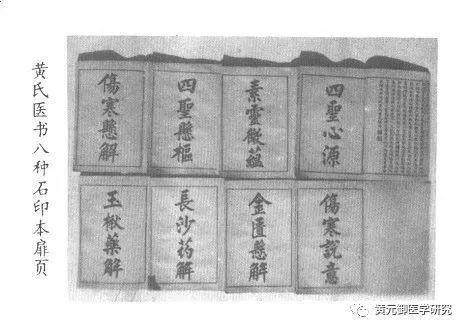 黄氏医书八种石印本扉页
四聖心源
素靈微蘊
四聖懸樞
傷寒懸解
傷寒說意
金匱懸解
長沙药解
玉楸藥解
黄元御医学研究